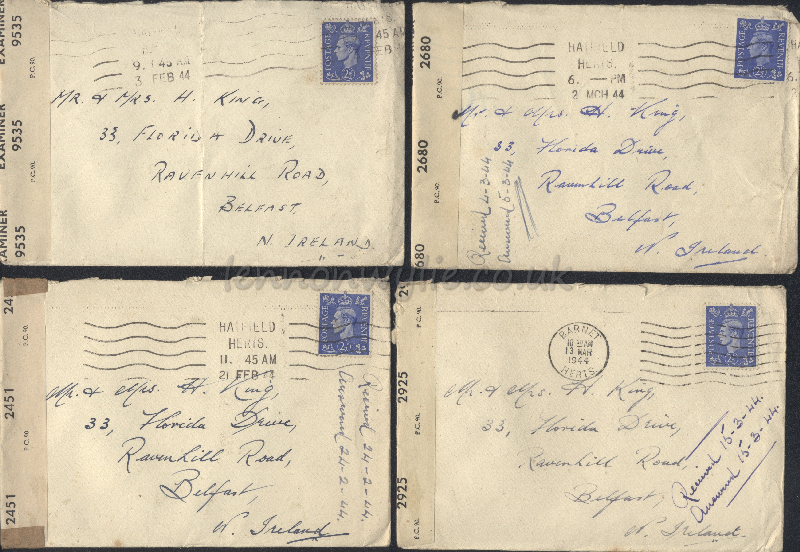 EXAMINER
9535
P.C. 90.
EXAMINER
9535
P.C. 90.
EXAMINER
9535
45 AM
FEB
9. 45 AM
3 FEB 44
POSTAGE
REVENUE
2½
MR. & MRS. H. KING,
33, FLORIDA DRIVE,
RAVENHILL ROAD,
BELFAST,
N. IRELAND.
2680
P.C. 90.
2680
P.C. 90.
680
HATFIELD
HERTS.
6. — PM
2 MCH 44
POSTAGE
REVENUE
Mr. & Mrs. H. King,
33, Florida Drive,
Ravenhill Road,
Belfast,
N. Ireland.
Received 4-3-44
Answered 5-3-44
lennonwylie.co.uk
24
P.C. 90.
2451
P.C. 90.
2451
HATFIELD
HERTS.
11. 45 AM
21 FEB 44
POSTAGE
REVENUE
2½
Mr. & Mrs. H. King,
33, Florida Drive,
Ravenhill Road,
Belfast,
N. Ireland
Received 24-2-44.
Answered 24-2-44.
P.C. 90.
2925
P.C. 90.
2925
BARNET
13 MAR
1944
HERTS.
POSTAGE
REVENUE
2½
Mr. & Mrs. H. King,
33, Florida Drive,
Ravenhill Road,
Belfast,
N. Ireland.
Received 15-3-44.
Answered 15-3-44.